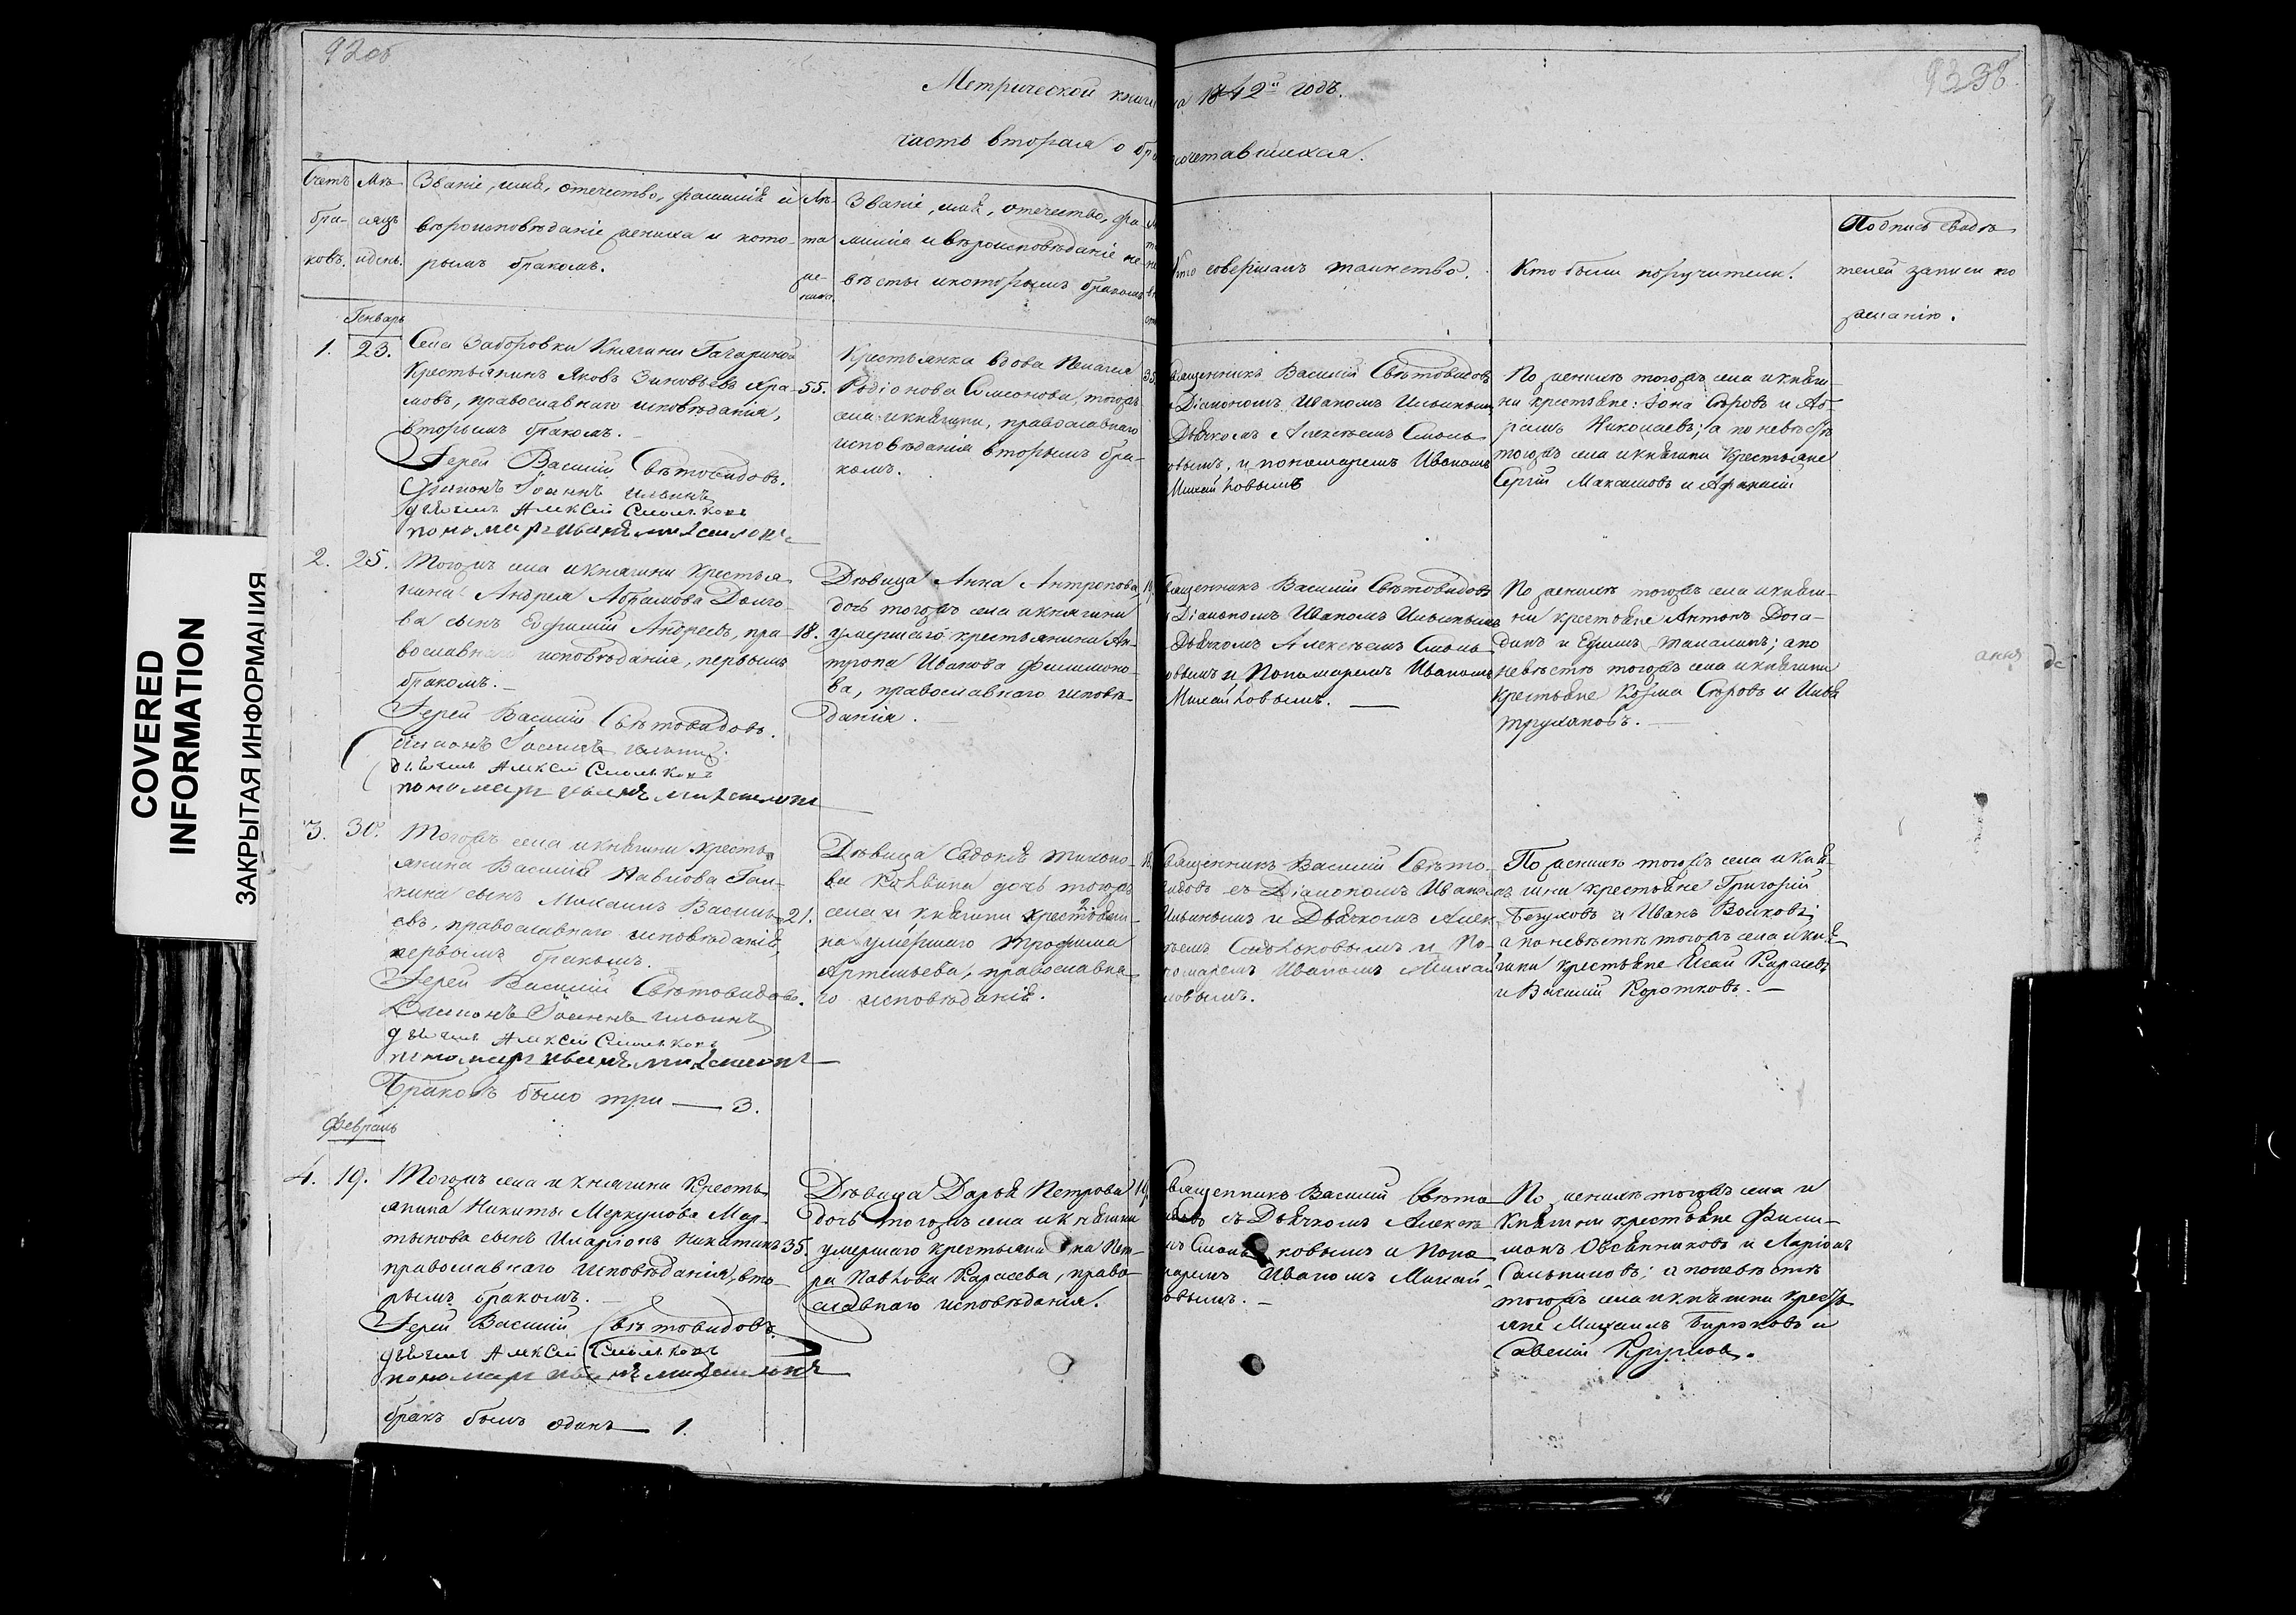 92об
93 38
Метрической книги на 1842й годъ.
часть вторая о бракосочетавшихся.
Счетъ браковъ.
Мѣсяцъ и день.
Званіе, имя, отечество, фамилія и
вѣроисповѣданіе жениха и кото-
рымъ бракомъ.
Лѣ-
та
же-
ниха.
Званіе, имя, отечество, фа-
милія и вѣроисповѣданіе не-
вѣсты и которымъ бракомъ
Кто совершалъ таинство.
Кто были поручители.
Подпись свидѣ-
телей записи по
желанію.
Генварь
1. 23.
Села Заборовки Княгини Гагариной
Крестьянинъ Яковъ Зиновьевъ Хра-
мовъ, православнаго исповѣданія,
вторымъ бракомъ.
55.
Іерей Василій Свѣтовидовъ.
Діаконъ Іоаннъ Ильинъ
дьячекъ Алексей Смольковъ
пономарь Иванъ Михайловъ
Крестьянка вдова Пелагея
Родіонова Симонова, тогожъ
села и княгини, православнаго
исповѣданія вторымъ бра-
комъ.
35.
Священникъ Василій Свѣтовидовъ
Діакономъ Иваномъ Ильинымъ
Дьячкомъ Алексѣемъ Смоль
овымъ, и пономаремъ Иваномъ
Михайловымъ
По женихѣ тогожъ села и княги-
ни крестьяне: Іона Сѣровъ и Аб-
рамъ Николаевъ; а по невѣстѣ
тогожъ села и княгини Крестьяне
Сергій Максимовъ и Афанасій
2. 25.
Тогожъ села и княгини крестья
нина Андрея Абрамова Долго-
ва сынъ Ефимій Андреевъ, пра-
вославнаго исповѣданія, первымъ
бракомъ.
18.
Іерей Василій Свѣтовидовъ.
Діаконъ Іоаннъ Ильинъ.
дьячекъ Алексей Смольковъ
пономарь Иванъ Михайловъ
Дѣвица Анна Антропова
дочь тогожъ села и княгини
умершаго крестьянина Ан-
тропа Иванова Филимоно-
ва, православнаго исповѣ-
данія.
Священникъ Василій Свѣтовидовъ
Діакономъ Иваномъ Ильинымъ
Дьячкомъ Алексѣемъ Смоль
овымъ и Пономаремъ Иваномъ
Михайловымъ.
По женихѣ тогожъ села и княги-
ни крестьяне Антонъ Дога-
динъ и Ефимъ Талалинъ; а по
невѣстѣ тогожъ села и княгини
крестьяне Козма Сѣровъ и Илья
Трухановъ.
3. 30.
Тогожъ села и княгини кресть
янина Василія Павлова Гал-
кина сынъ Михаилъ Василь-
евъ, православнаго исповѣданія,
первымъ бракомъ.
21.
Іерей Василій Свѣтовидовъ.
Діаконъ Іоаннъ Ильинъ
дьячекъ Алексей Смольковъ
пономарь Иванъ Михайловъ
Дѣвица Евдокія
дочь тогожъ
села и княгини крестьяни-
на умершаго Трофима
Артемьева, православна-
го исповѣданія.
Священникъ Василій Свѣто-
видовъ съ Діакономъ Ивано
Ильинымъ и Дьячкомъ Алек
ѣемъ Смольковымъ и По-
номаремъ Иваномъ Михай
ловымъ.
По женихѣ тогожъ села и кня-
гини крестьяне Григорій
Безуховъ и Иванъ Волковъ;
а по невѣстѣ тогожъ села и кня-
гини крестьяне Исай Карасевъ
и Василій Коротковъ.
Браковъ было три — 3.
Февраль
4. 19.
Тогожъ села и княгини Кресть
янина Никиты Меркулова Мар-
тынова сынъ Иларіонъ Никитинъ
православнаго исповѣданія, вто-
рымъ бракомъ.
35.
Іерей Василій Свѣтовидовъ.
дьячекъ Алексей Смольковъ
пономарь Иванъ Михайловъ
Дѣвица Дарья Петрова
дочь тогожъ села и княгини
умершаго крестьянина Пет-
ра Павлова Карасева, право-
славнаго исповѣданія.
Священникъ Василій Свѣто
съ Дьячкомъ Алексѣ
мъ Смольковымъ и Поно
маремъ Иваномъ Михай-
ловымъ.
По женихѣ тогожъ села и
Княгини крестьяне Фили-
монъ Овсянниковъ и Ларіонъ
Сальниковъ; а по невѣстѣ
тогожъ села и княгини кресть
яне Михаилъ Бирюковъ и
Савелій Кругловъ.
бракъ былъ одинъ — 1.
COVERED
INFORMATION
ЗАКРЫТАЯ ИНФОРМАЦИЯ